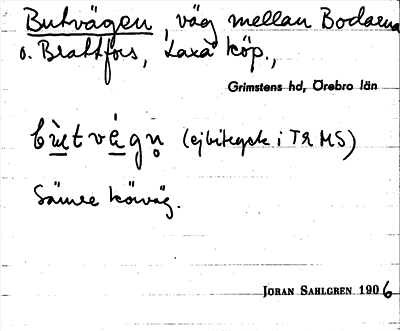 Butvägen, väg mellan Bodarna
o. Brattfors, Laxå köp.,
Grimstens hd, Örebro län
Sämre körväg.
JÖRAN SAHLGREN 1906